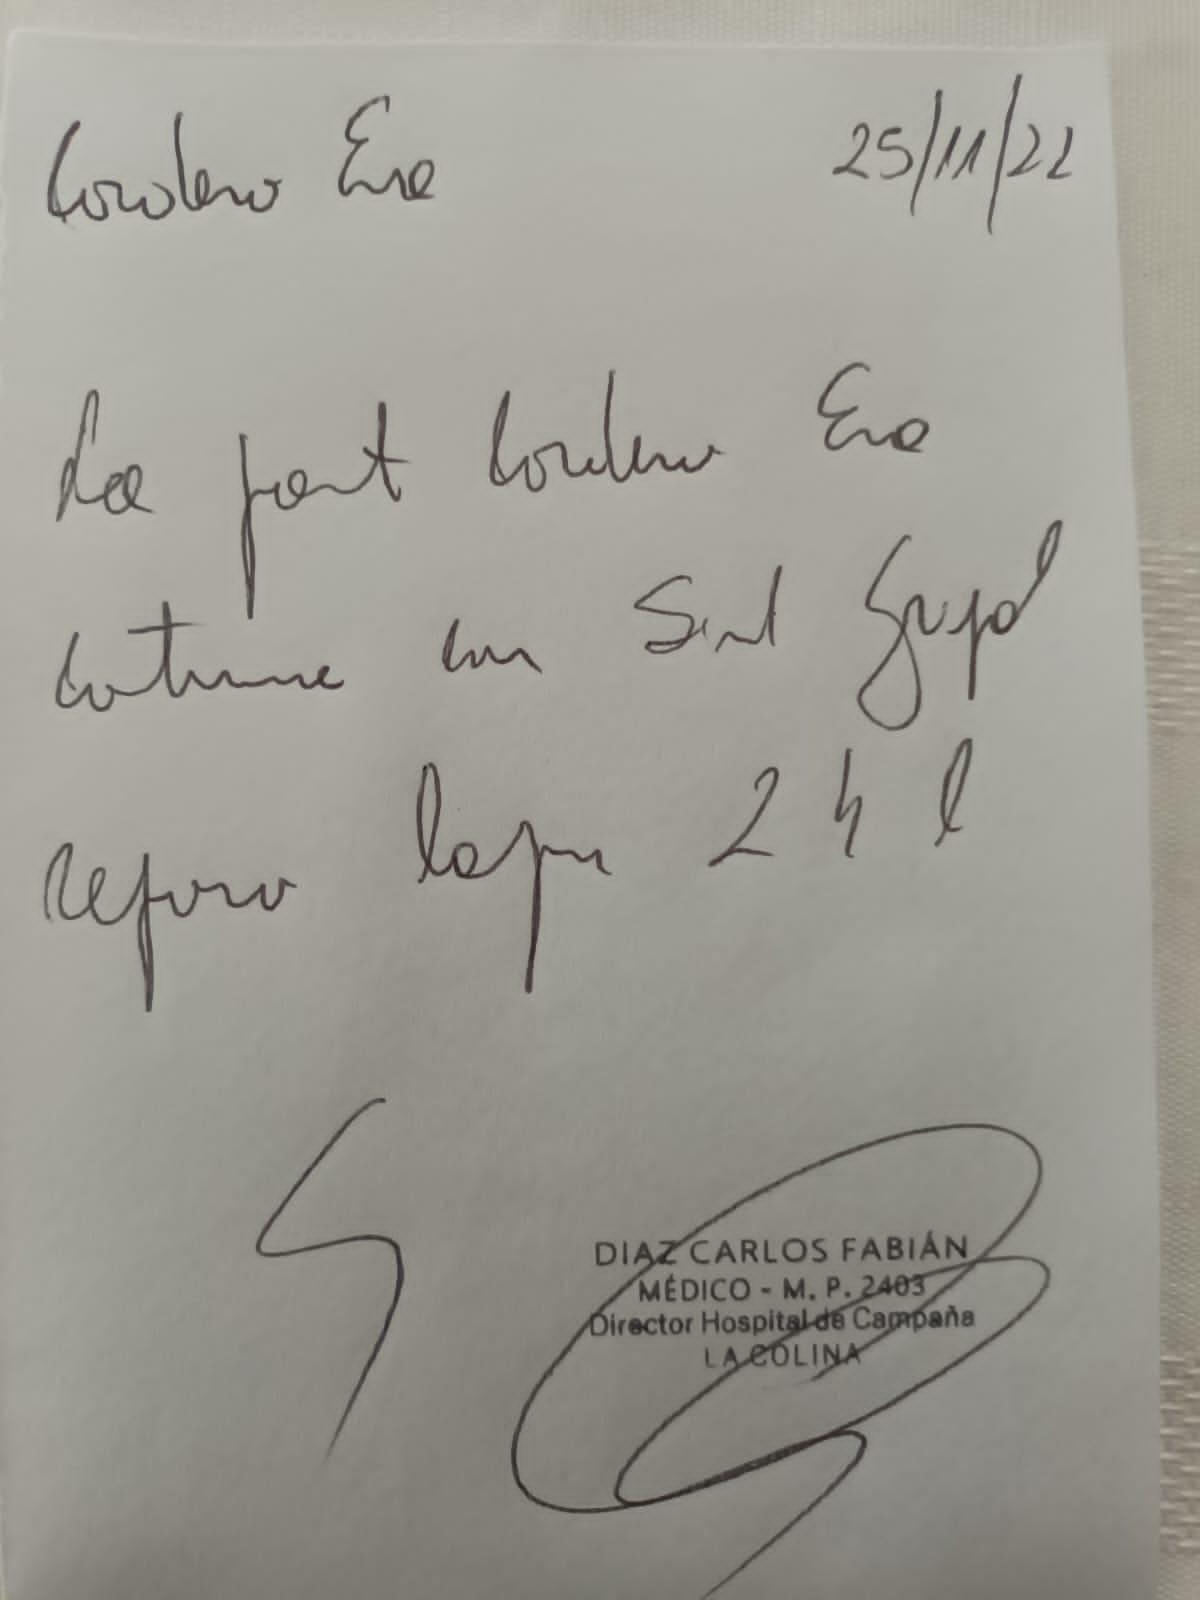 Cordero Eva 25/11/22
La pact Cordero Eva
continua con Sind Gripal
reposo lapso 24 h
DIAZ CARLOS FABIÁN
MÉDICO - M. P. 2403
Director Hospital de Campaña
LA COLINA